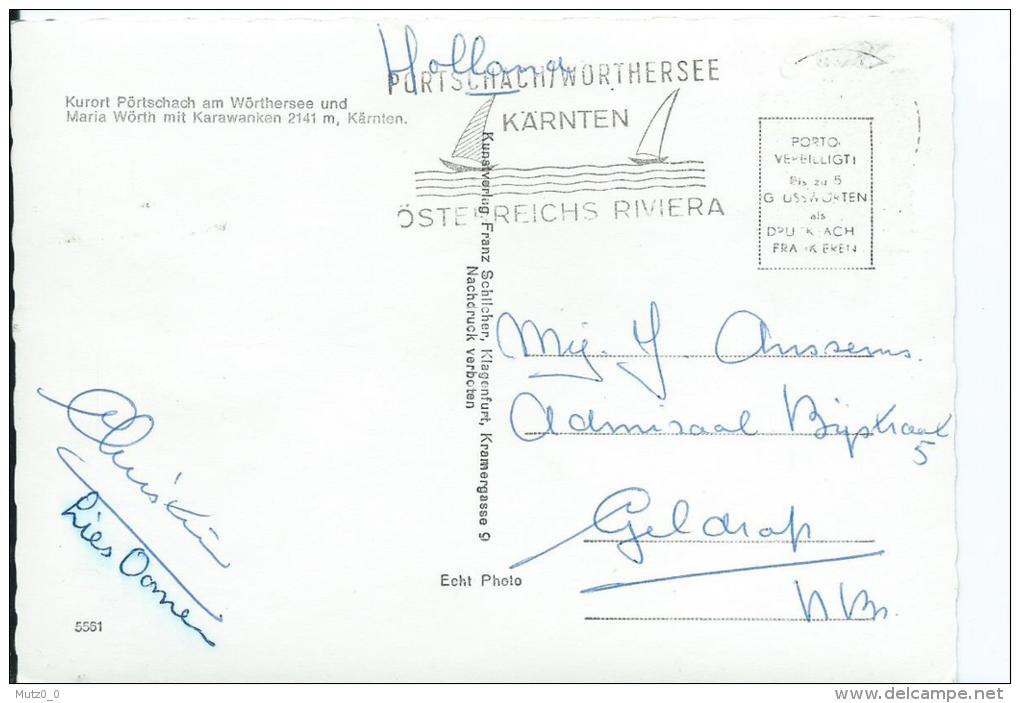 Holland
PÖRTSCHACH/WÖRTHERSEE
KÄRNTEN
ÖSTERREICHS RIVIERA
Kurort Pörtschach am Wörthersee und
Maria Wörth mit Karawanken 2141 m, Kärnten.
PORTO
VERBILLIGT!
Bis zu 5
GRUSSWORTEN
als
DRUCKSACHE
FRANKIEREN
Kunstverlag Franz Schilcher, Klagenfurt, Kramergasse 9
Nachdruck verboten
Mej. J. Anssems.
Admiraal
5
Geldrop
N Br.
Christin
Lies
Echt Photo
5561
Mutz0_0
www.delcampe.net